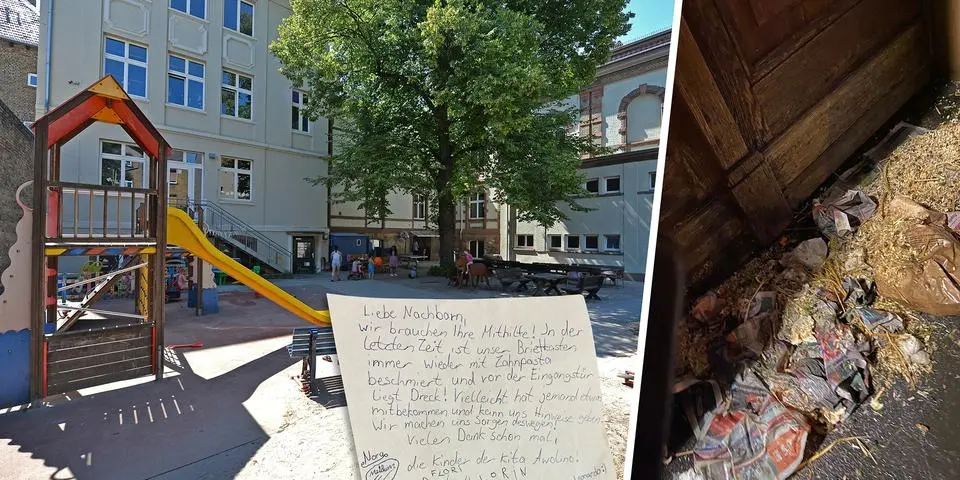 Liebe Nachbarn,
wir brauchen Ihre Mithilfe! In der
letzten Zeit ist unser Briefkasten
immer wieder mit Zahnpasta
beschmiert und vor der Eingangstür
liegt Dreck! Vielleicht hat jemand etwas
mitbekommen und kann uns Hinweise geben.
Wir machen uns Sorgen deswegen!
Vielen Dank schon mal,
die Kinder der Kita Awolino!
FLORI
ORIN